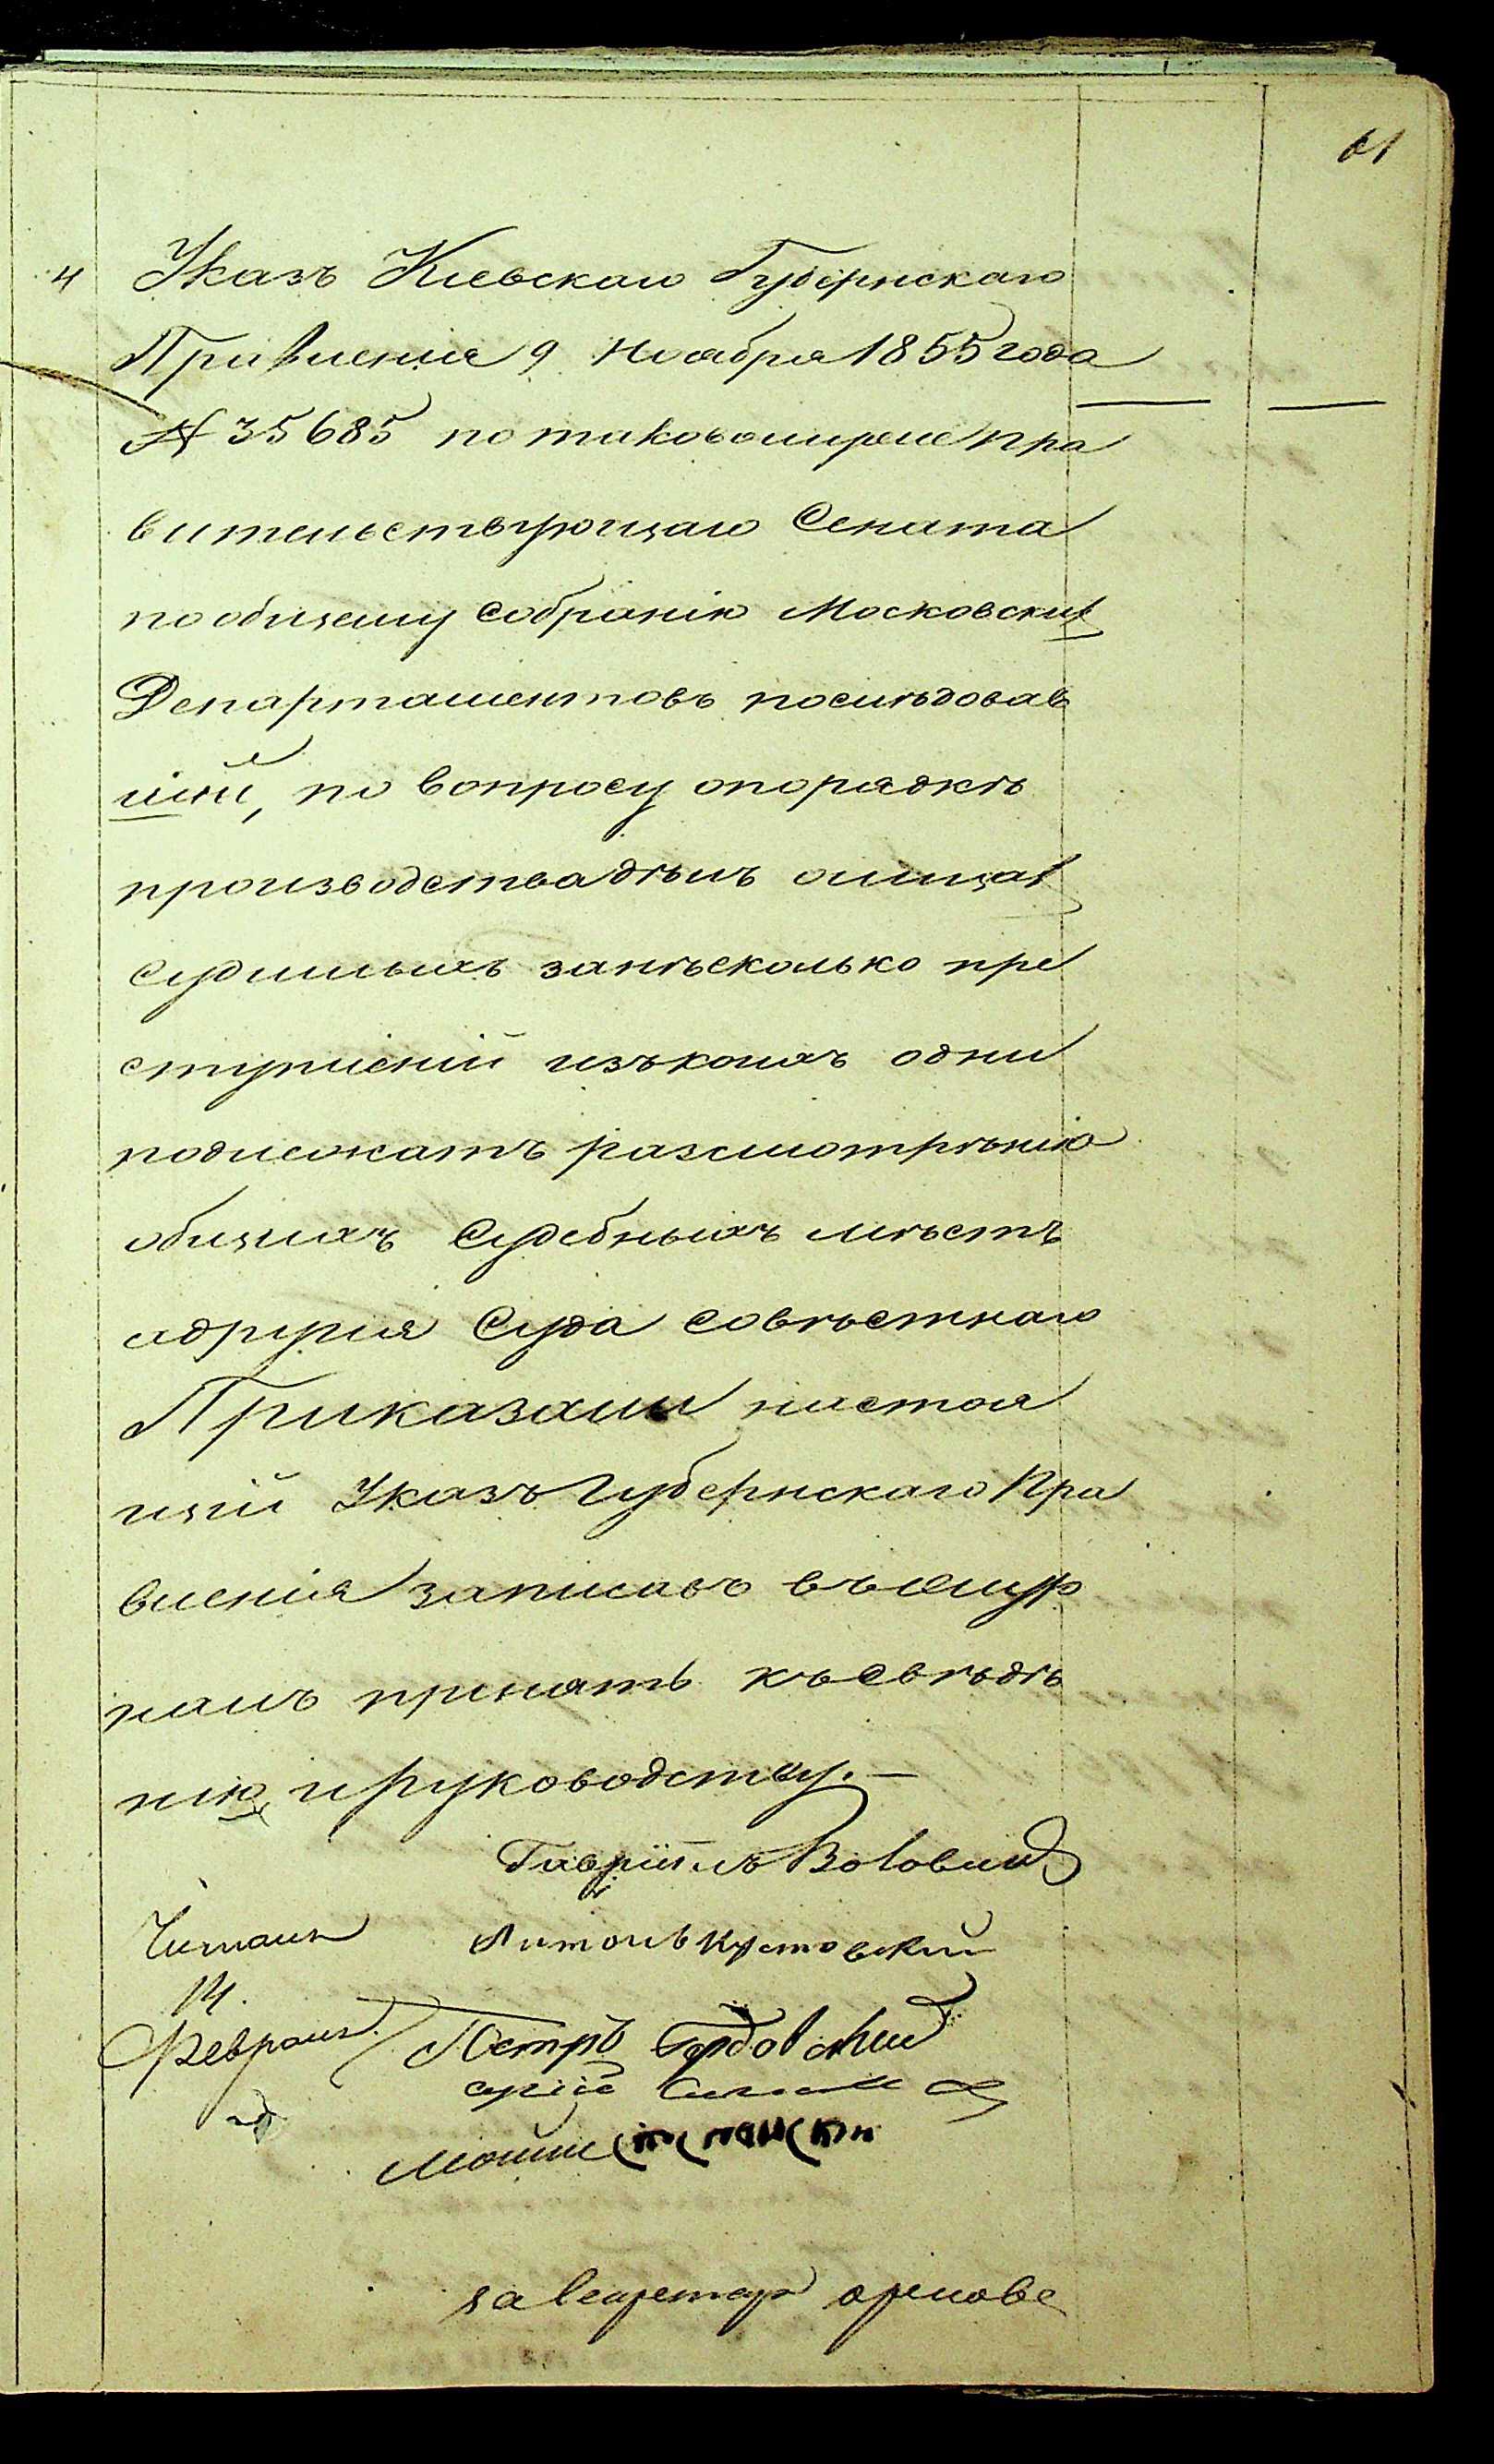 61
4 Указъ Кіевскаго Губернскаго
Правленія 9 Ноября 1855 года
№ 35685 по таковомуже Пра
вительствующаго Сената
по общему собранію Московских
Департаментовъ послѣдовав
шій, по вопросу опорядкѣ
производства дѣлъ олицах
судимыхъ занѣсколько пре
ступленій изъкоихъ одни
подлежатъ разсмотрѣнію
общихъ Судебныхъ мѣстъ
адругія Суда Совѣстнаго
Приказали настоя
щій Указъ Губернскаго Пра
вленія записавъ въжур
налъ принять къ свѣдѣ
нію и руководству.—
Гавріилъ
Читалъ Антонъ Кустовскій
14.
Февраля. Петръ
Мошко
за Секретар Орлова